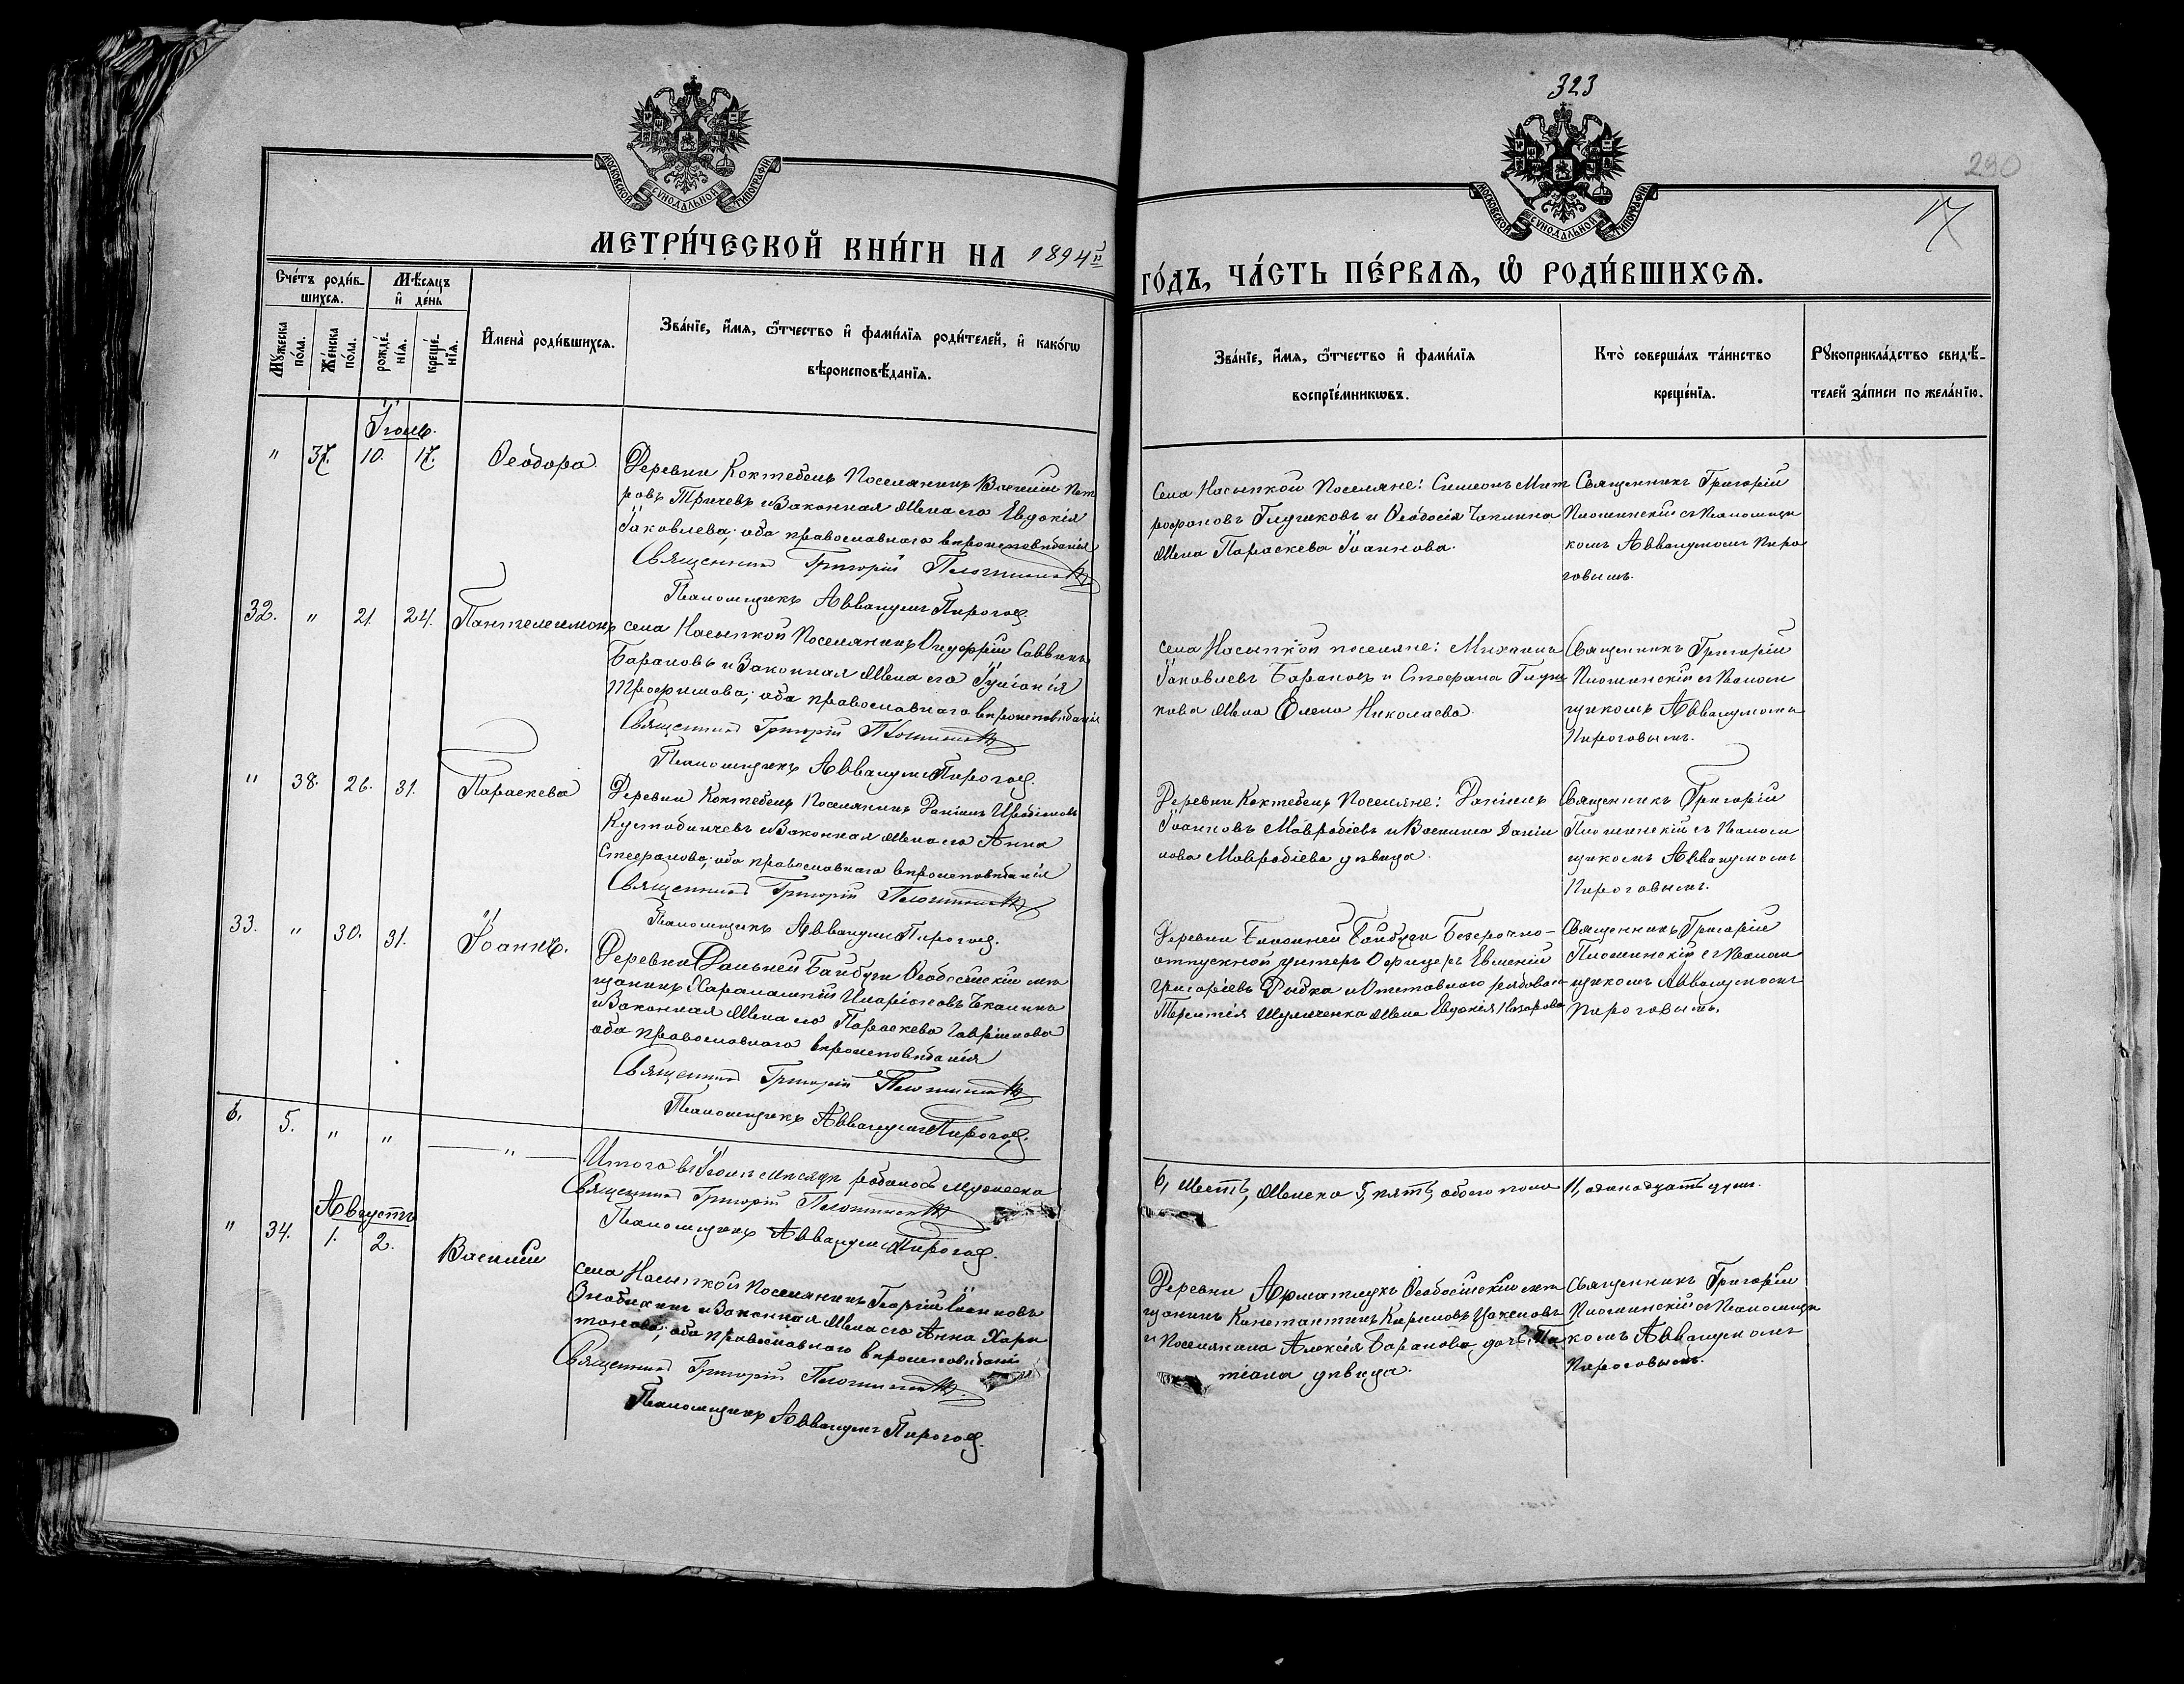 323
290
17
МОСКОВСКОЙ СѴНОДАЛЬНОЙ ТИПОГРАФІИ
МОСКОВСКОЙ СѴНОДАЛЬНОЙ ТИПОГРАФІИ
МЕТРИ́ЧЕСКОЙ КНИ́ГИ НА 1894й
ГО́ДЪ, ЧА́СТЬ ПЕ́РВАЯ, Ѽ РОДИ́ВШИХСЯ.
Сче́тъ роди́в-
шихся.
Мѣ́сяцъ
и҆ де́нь
Мꙋ́жеска по́ла.
Же́нска по́ла.
рожде́-
нїѧ.
креще́-
нїѧ.
И҆мена̀ роди́вшихся.
Зва́нїе, и҆́мя, ѻ҆́тчество и҆ фами́лїя роди́телей, и҆ како́гѡ
вѣроисповѣ́данїя.
Зва́нїе, и҆́мя, ѻ҆́тчество и҆ фами́лїя
воспрїе́мникѡвъ.
Кто̀ соверша́лъ та́инство
креще́нїя.
Рꙋкоприкла́дство свидѣ́-
телей за́писи по жела́нїю.
Іюль.
" 37. 10. 17. Ѳеодора.
Деревни Коктебель Поселянинъ Василій Пет
ровъ Тричевъ и Законная Жена его Евдокія
Іаковлева; оба православнаго вѣроисповѣданія
Священникъ Григорій
Псаломщикъ Аввакумъ Пирогов.
Села Насыпкой Поселяне: Симеонъ Мит
рофановъ Глушковъ и Ѳеодосія Чаплина
Жена Параскева Іоаннова.
Священникъ Григорій
съ Псаломщи
комъ Аввакумомъ Пиро
говымъ.
32. " 21. 24. Пантелеимонъ
села Насыпкой Поселянинъ Онуфрій Саввинъ
Барановъ и Законная Жена его Іуліанія
Трофимова; оба православнаго вѣроисповѣданія
Священникъ Григорій
Псаломщикъ Аввакумъ Пирогов.
села Насыпкой поселяне: Михаилъ
Іаковлевъ Барановъ и Стефана Глуш
кова Жена Елена Николаева.
Священникъ Григорій
съ Псалом
щикомъ Аввакумомъ
Пироговымъ.
" 38. 26. 31. Параскева
Деревни Коктебель Поселянинъ Даніилъ
и Законная Жена его Анна
Стефанова; оба православнаго вѣроисповѣданія
Священникъ Григорій
Псаломщикъ Аввакумъ Пирогов.
Деревни Коктебель Поселяне: Даніилъ
Іоанновъ Мавродіевъ и Василиса Даніи
лова Мавродіева дѣвица.
Священникъ Григорій
съ Псалом
щикомъ Аввакумомъ
Пироговымъ.
33. " 30. 31. Іоаннъ.
Деревни Дальней Байбуги Ѳеодосійскій мѣ
щанинъ Харалампій Иларіоновъ Чкалинъ
и Законная Жена его Параскева Гавріилова
оба православнаго вѣроисповѣданія
Священникъ Григорій
Псаломщикъ Аввакумъ Пирогов.
Деревни Ближней Байбуги Безсрочно-
отпускной унтеръ Офицеръ Евменій
Григоріевъ Рыбка и Отставного рядоваго
Терентія Шульженка Жена Евдокія Назарова
Священникъ Григорій
съ Псалом
щикомъ Аввакумомъ
Пироговымъ.
6. 5. " " — " —
Итого въ Іюлѣ мѣсяцѣ родилось мужеска
6, шесть, Женска 5, пять, обоего пола 11, одинадцать душъ.
Священникъ Григорій
Псаломщикъ Аввакумъ Пирогов.
Августъ
" 34. 1. 2. Василій
села Насыпкой Поселянинъ Георгій Іоанновъ
Знобилинъ и Законная Жена его Анна Хари
тонова; оба православнаго вѣроисповѣданія
Священникъ Григорій
Псаломщикъ Аввакумъ Пирогов.
Деревни Арматлукъ Ѳеодосійскій мѣ
щанинъ Константинъ Кириловъ
и Поселянина Алексѣя Баранова дочь Та
тіана дѣвица.
Священникъ Григорій
съ Псаломщи
комъ Аввакумомъ
Пироговымъ.